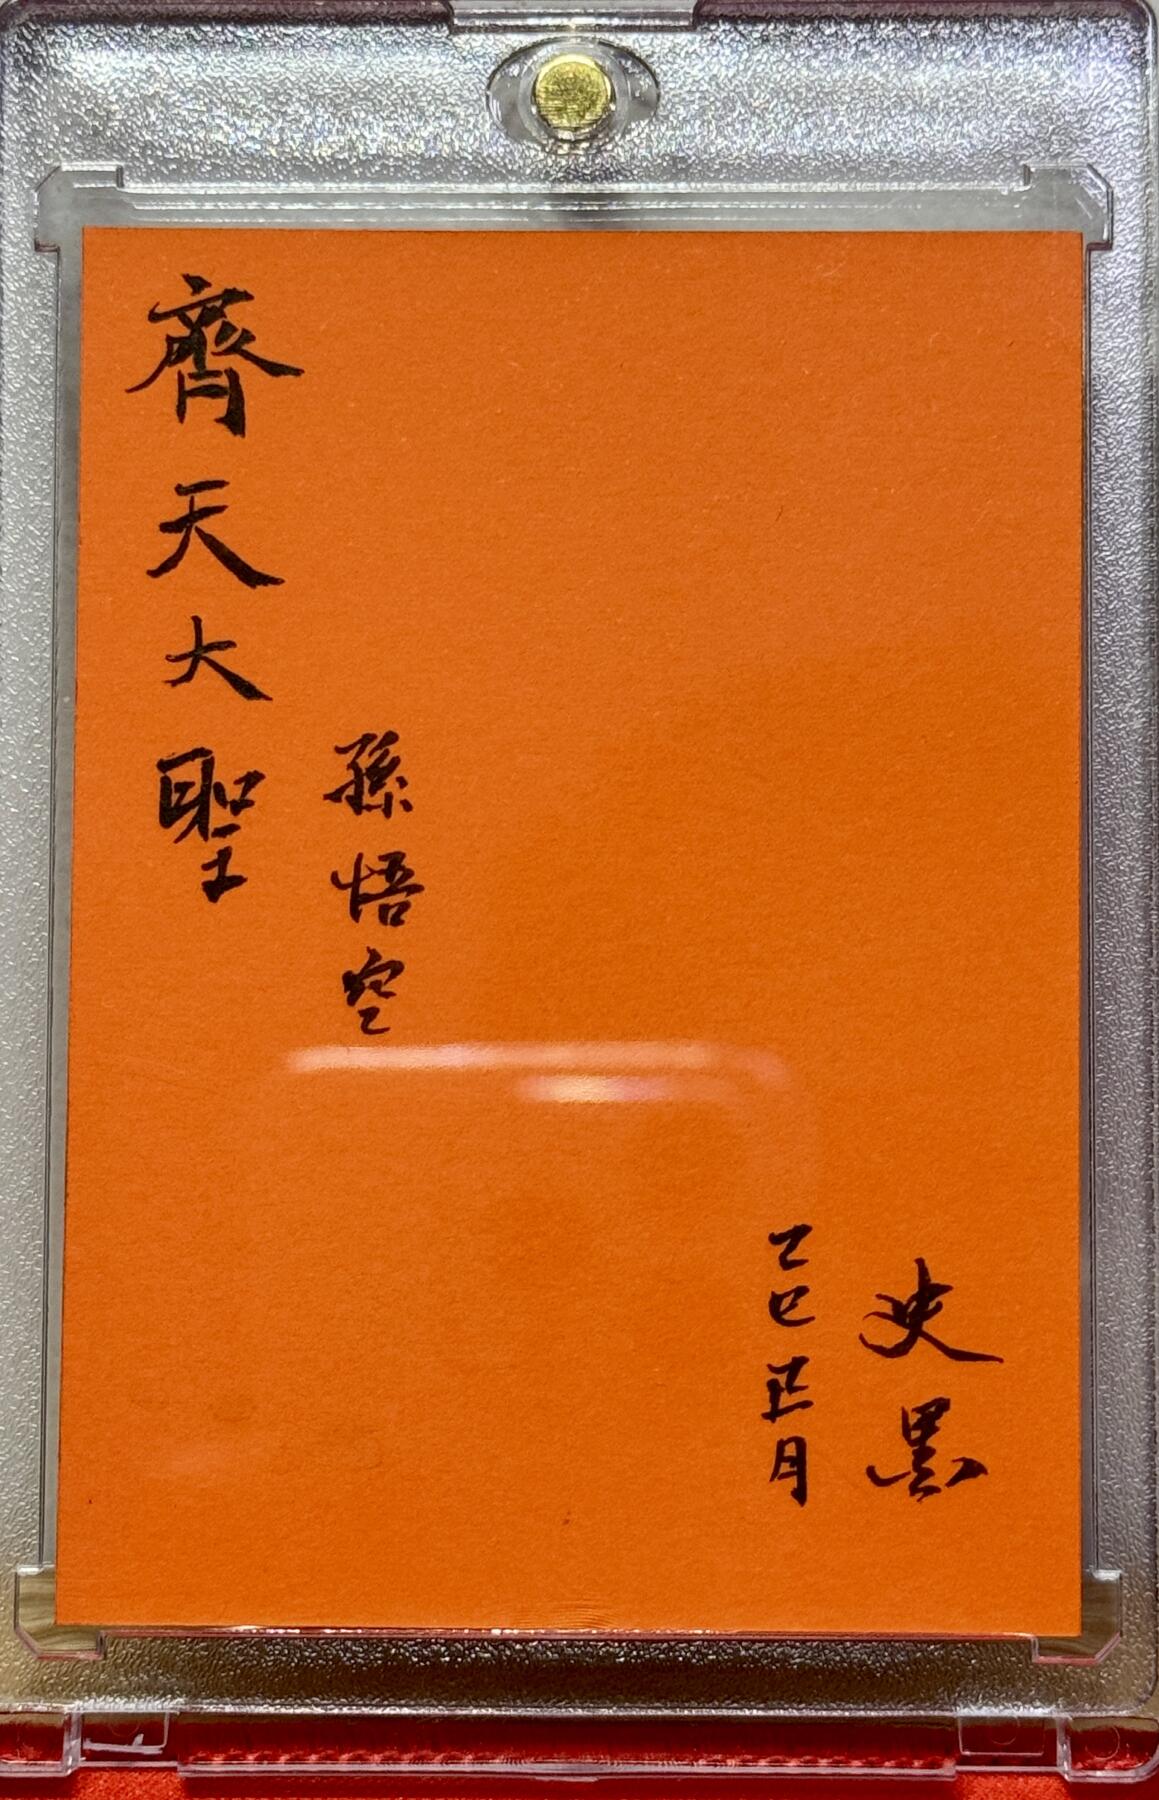 齊天大聖
孫悟空
乙巳正月
史黑